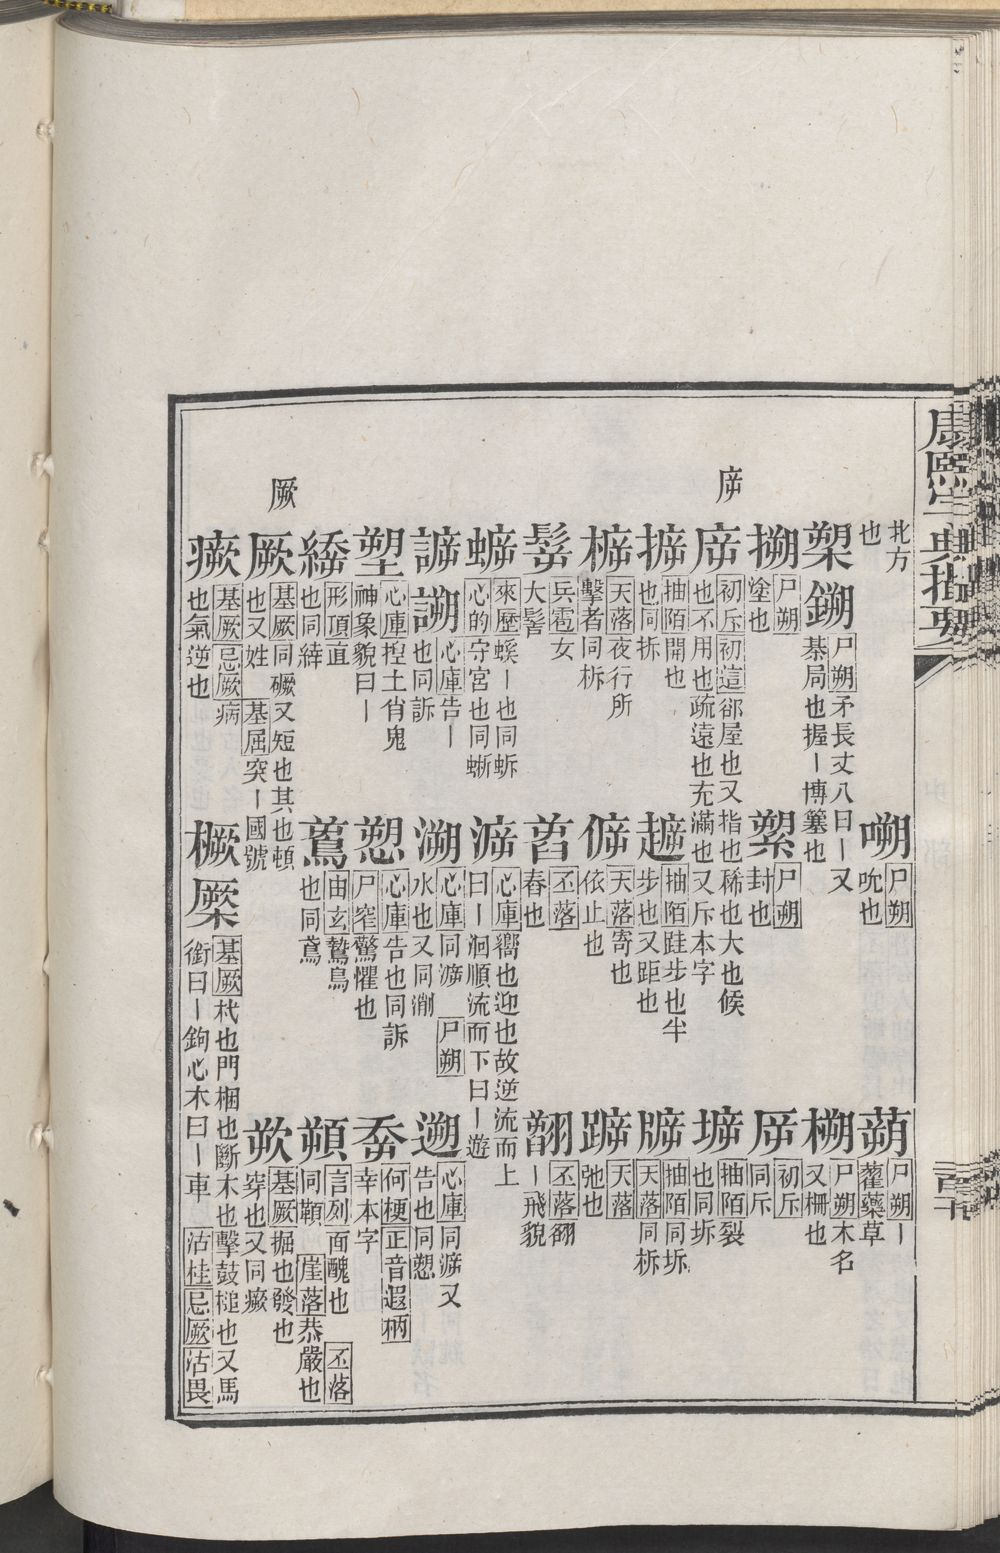 康熙字典撮要
北方也 嗍 尸朔吮也 蒴 尸朔丨藋藥草
槊鎙 尸朔矛長丈八曰丨又棊局也握丨博簺也 尸朔木名又柵也
搠 尸朔塗也 尸朔封也 初斥同斥
㡿
㡿 初斥初這郤屋也又指也稀也大也候也不用也疏遠也充滿也又斥本字 抽陌裂也同坼
抽陌開也也同拆 抽陌跬步也半步也又距也 抽陌同坼天落同柝
天落夜行所擊者同柝 天落寄也依止也 天落弛也
兵雹女大髻 丕落舂也 丕落翎丨飛貌
來歷螇丨也同蚸心的守宮也同蜥 㴑 心庫嚮也迎也故逆流而上曰丨洄順流而下曰丨遊
心庫告丨也同訴 溯 心庫同㴑尸朔水也又同 遡 心庫同㴑又告也同愬
塑 心庫揑土肖鬼神象貌曰丨 愬 心庫告也同訴尸窄驚懼也 何梗正音遐柄幸本字
形頂直也同緈 由玄鷙鳥也同鳶 言列面醜也同 崖落恭嚴也丕落
厥
厥 基厥同 又短也其也頓也又姓基屈突丨國號 欮 基厥掘也發也穿也又同瘚
瘚 基厥忌厥病也氣逆也 橛 基厥杙也門梱也斷木也擊鼓槌也又馬銜曰丨鉤心木曰丨車沽桂忌厥沽畏